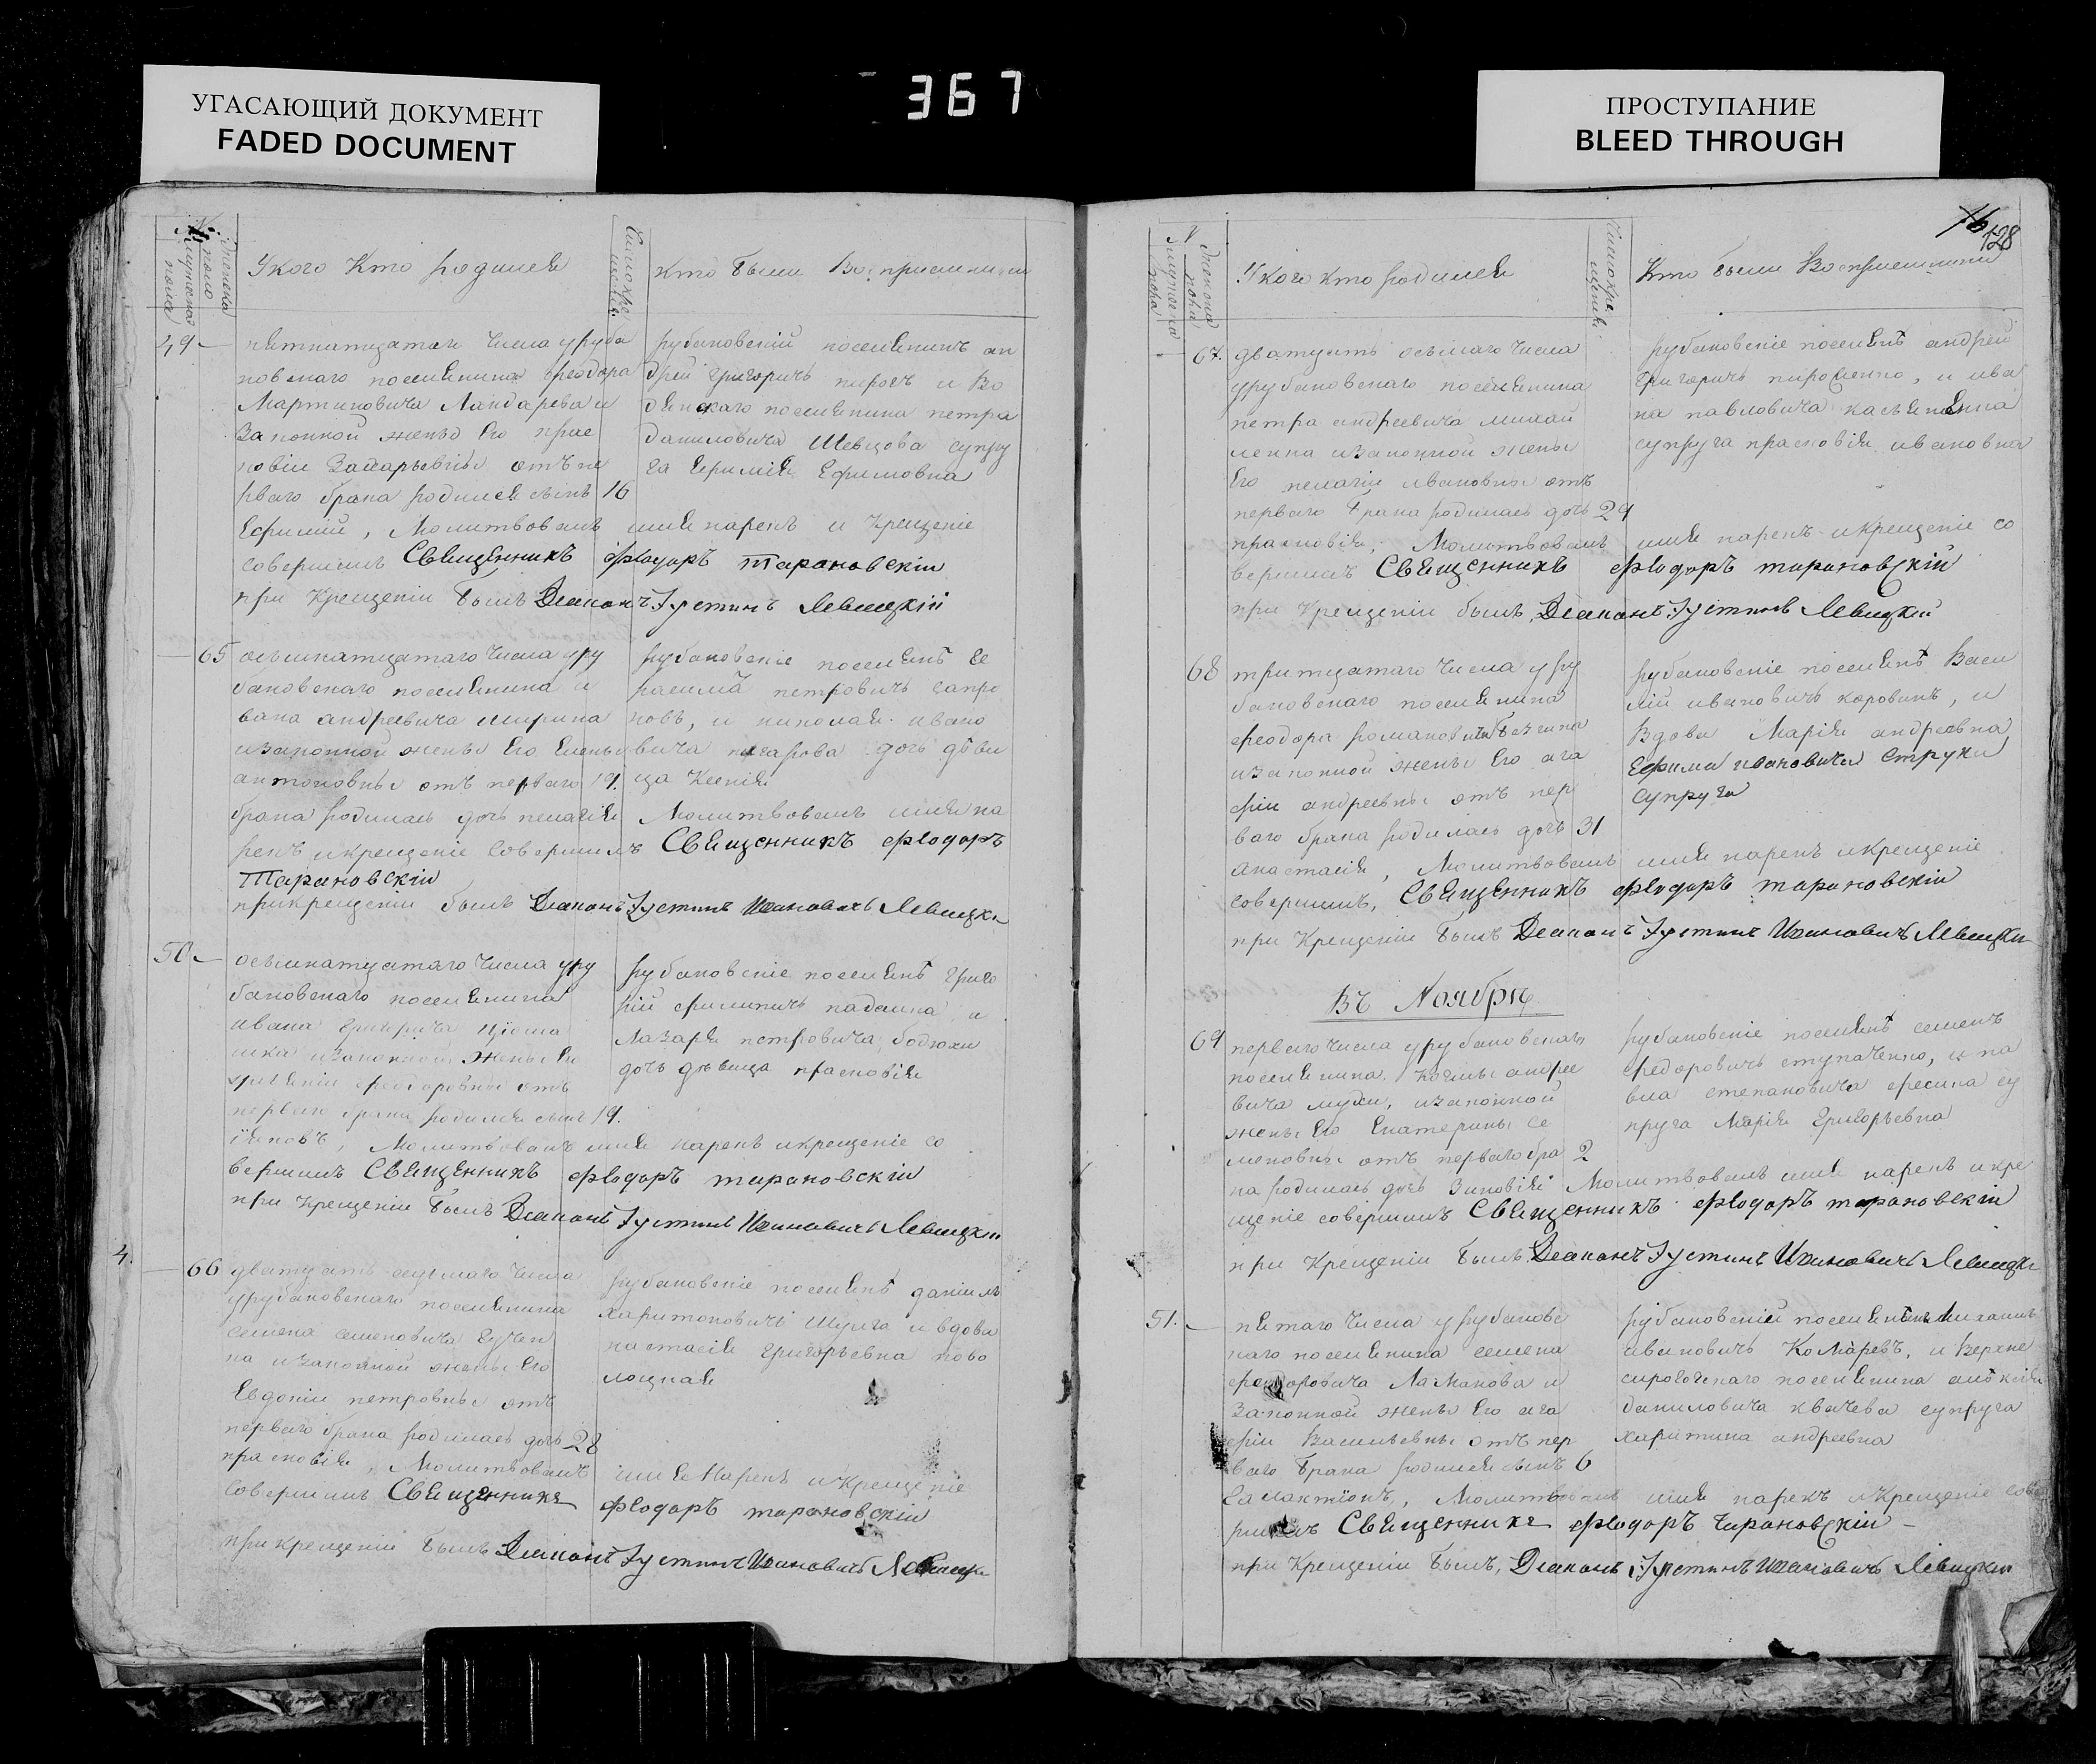 УГАСАЮЩИЙ ДОКУМЕНТ
FADED DOCUMENT
367
ПРОСТУПАНИЕ
BLEED THROUGH
128
У кого Кто родился
кто были Восприемники
49
пятнатцатаго Числа у руба
новскаго поселянина феодора
Мартиновича Ландарева и
Законной жены Его прас
ковiи Захарьевны отъ пе
рваго брака родился сынъ 16
Ефимiй, Молитвовалъ имя нарекъ и Крещенiе
совершилъ Священникъ Феодоръ Тарановскiй
при Крещенiи былъ Дiаконъ Iустинъ Левицкiй
рубановскiй поселянинъ ан
дрей григоричъ пирогъ и Во
дянскаго поселянина петра
даниловича Шевцова супру
га Ефимiя Ефимовна
65
осьмнатцатаго Числа у ру
бановскаго поселянина и
вана андреевича ширина
и законной жены Его Елены
антоновны отъ перваго 19.
брака родилась дочь пелагiя Молитвовалъ имя на
рекъ и крещенiе Совершилъ Священникъ Феодоръ
Тарановскiй
при крещенiи былъ Дiаконъ Iустинъ Иоановичъ Левицкiй
рубановскiе поселяне ге
расимъ петровичъ сапро
новъ, и николая ивано
вича писарова дочь деви
ца Ксенiя
50
осьмнатцатаго Числа у ру
бановскаго поселянина
ивана григорича
и законной жены Его
феодоровны отъ
перваго брака родился сынъ 19.
Iяковъ, Молитвовалъ имя нарекъ и крещенiе со
вершилъ Священникъ Феодоръ тарановскiй
при крещенiи былъ Дiаконъ Iустинъ Иоановичъ Левицкiй
рубановскiе поселяне григо
рiй филипичъ падалка и
Лазаря петровича бодюхи
дочь девица прасковiя
4.
66
дватцать седьмаго Числа
у рубановскаго поселянина
семена семеновича
и законной жены Его
Евдокiи петровны отъ
перваго брака родилась дочь 28
прасковiя, Молитвовалъ имя Нарекъ и Крещенiе
Совершилъ Священникъ Феодоръ тарановскiй
при крещенiи былъ Дiаконъ Iустинъ Иоановичъ Левицкiй
рубановскiе поселяне данiилъ
харитоновичъ Шулга и вдова
настасiя григорьевна ново
лоцкая
У кого кто родился
Кто были Восприемники
67.
дватцать осьмаго Числа
у рубановскаго поселянина
петра андреевича михай
ленка и законной жены
Его пелагiи ивановны отъ
перваго брака родилась дочь 29
прасковiя, Молитвовалъ имя нарекъ и крещенiе со
вершилъ Священникъ Феодоръ тарановскiй
при Крещенiи былъ, Дiаконъ Iустинъ Левицкiй
рубановскiе поселяне андрей
григоричъ пироженко, и ива
на павловича касьяненка
супруга прасковiя ивановна
68
тритцатаго Числа у ру
бановскаго поселянина
феодора романовича
и законной жены Его ага
фiи андреевны отъ пер
ваго брака родилась дочь 31
анастасiя, Молитвовалъ имя нарекъ и крещенiе
совершилъ, Священникъ Феодоръ тарановскiй
при Крещенiи былъ Дiаконъ Iустинъ Иоановичъ Левицкiй
рубановскiе поселяне Васи
лiй ивановичъ коровинъ, и
Вдова Марiя андреевна
Ефима ивановича Струка
Супруга
Въ Ноябре
69
перваго Числа у рубановскаго
поселянина Космы андрее
вича мухи, и законной
жены Его Екатерины Се
меновны отъ перваго бра 2
ка родилась дочь Зиновiя Молитвовалъ имя нарекъ и кре
щенiе совершилъ Священникъ Феодоръ тарановскiй
при Крещенiи былъ Дiаконъ Iустинъ Иоановичъ Левицкiй
рубановскiе поселяне семенъ
федоровичъ ступаченко, и па
вла степановича фесика су
пруга Марiя Григорьевна
51.
пятаго Числа у рубановс
каго поселянина семена
феодоровича Ламанова и
Законной жены Его ага
фiи Васильевны отъ пер
ваго брака родился сынъ 6
Галактiонъ, Молитвовалъ имя нарекъ и Крещенiе сове
ршилъ Священникъ Феодоръ Тарановскiй
при Крещенiи былъ, Дiаконъ Iустинъ Иоановичъ Левицкiй
рубановскiй поселянинъ михаилъ
ивановичъ Комаревъ, и Верхне
сирогозскаго поселянина алексiя
даниловича квачева супруга
харитина андреевна